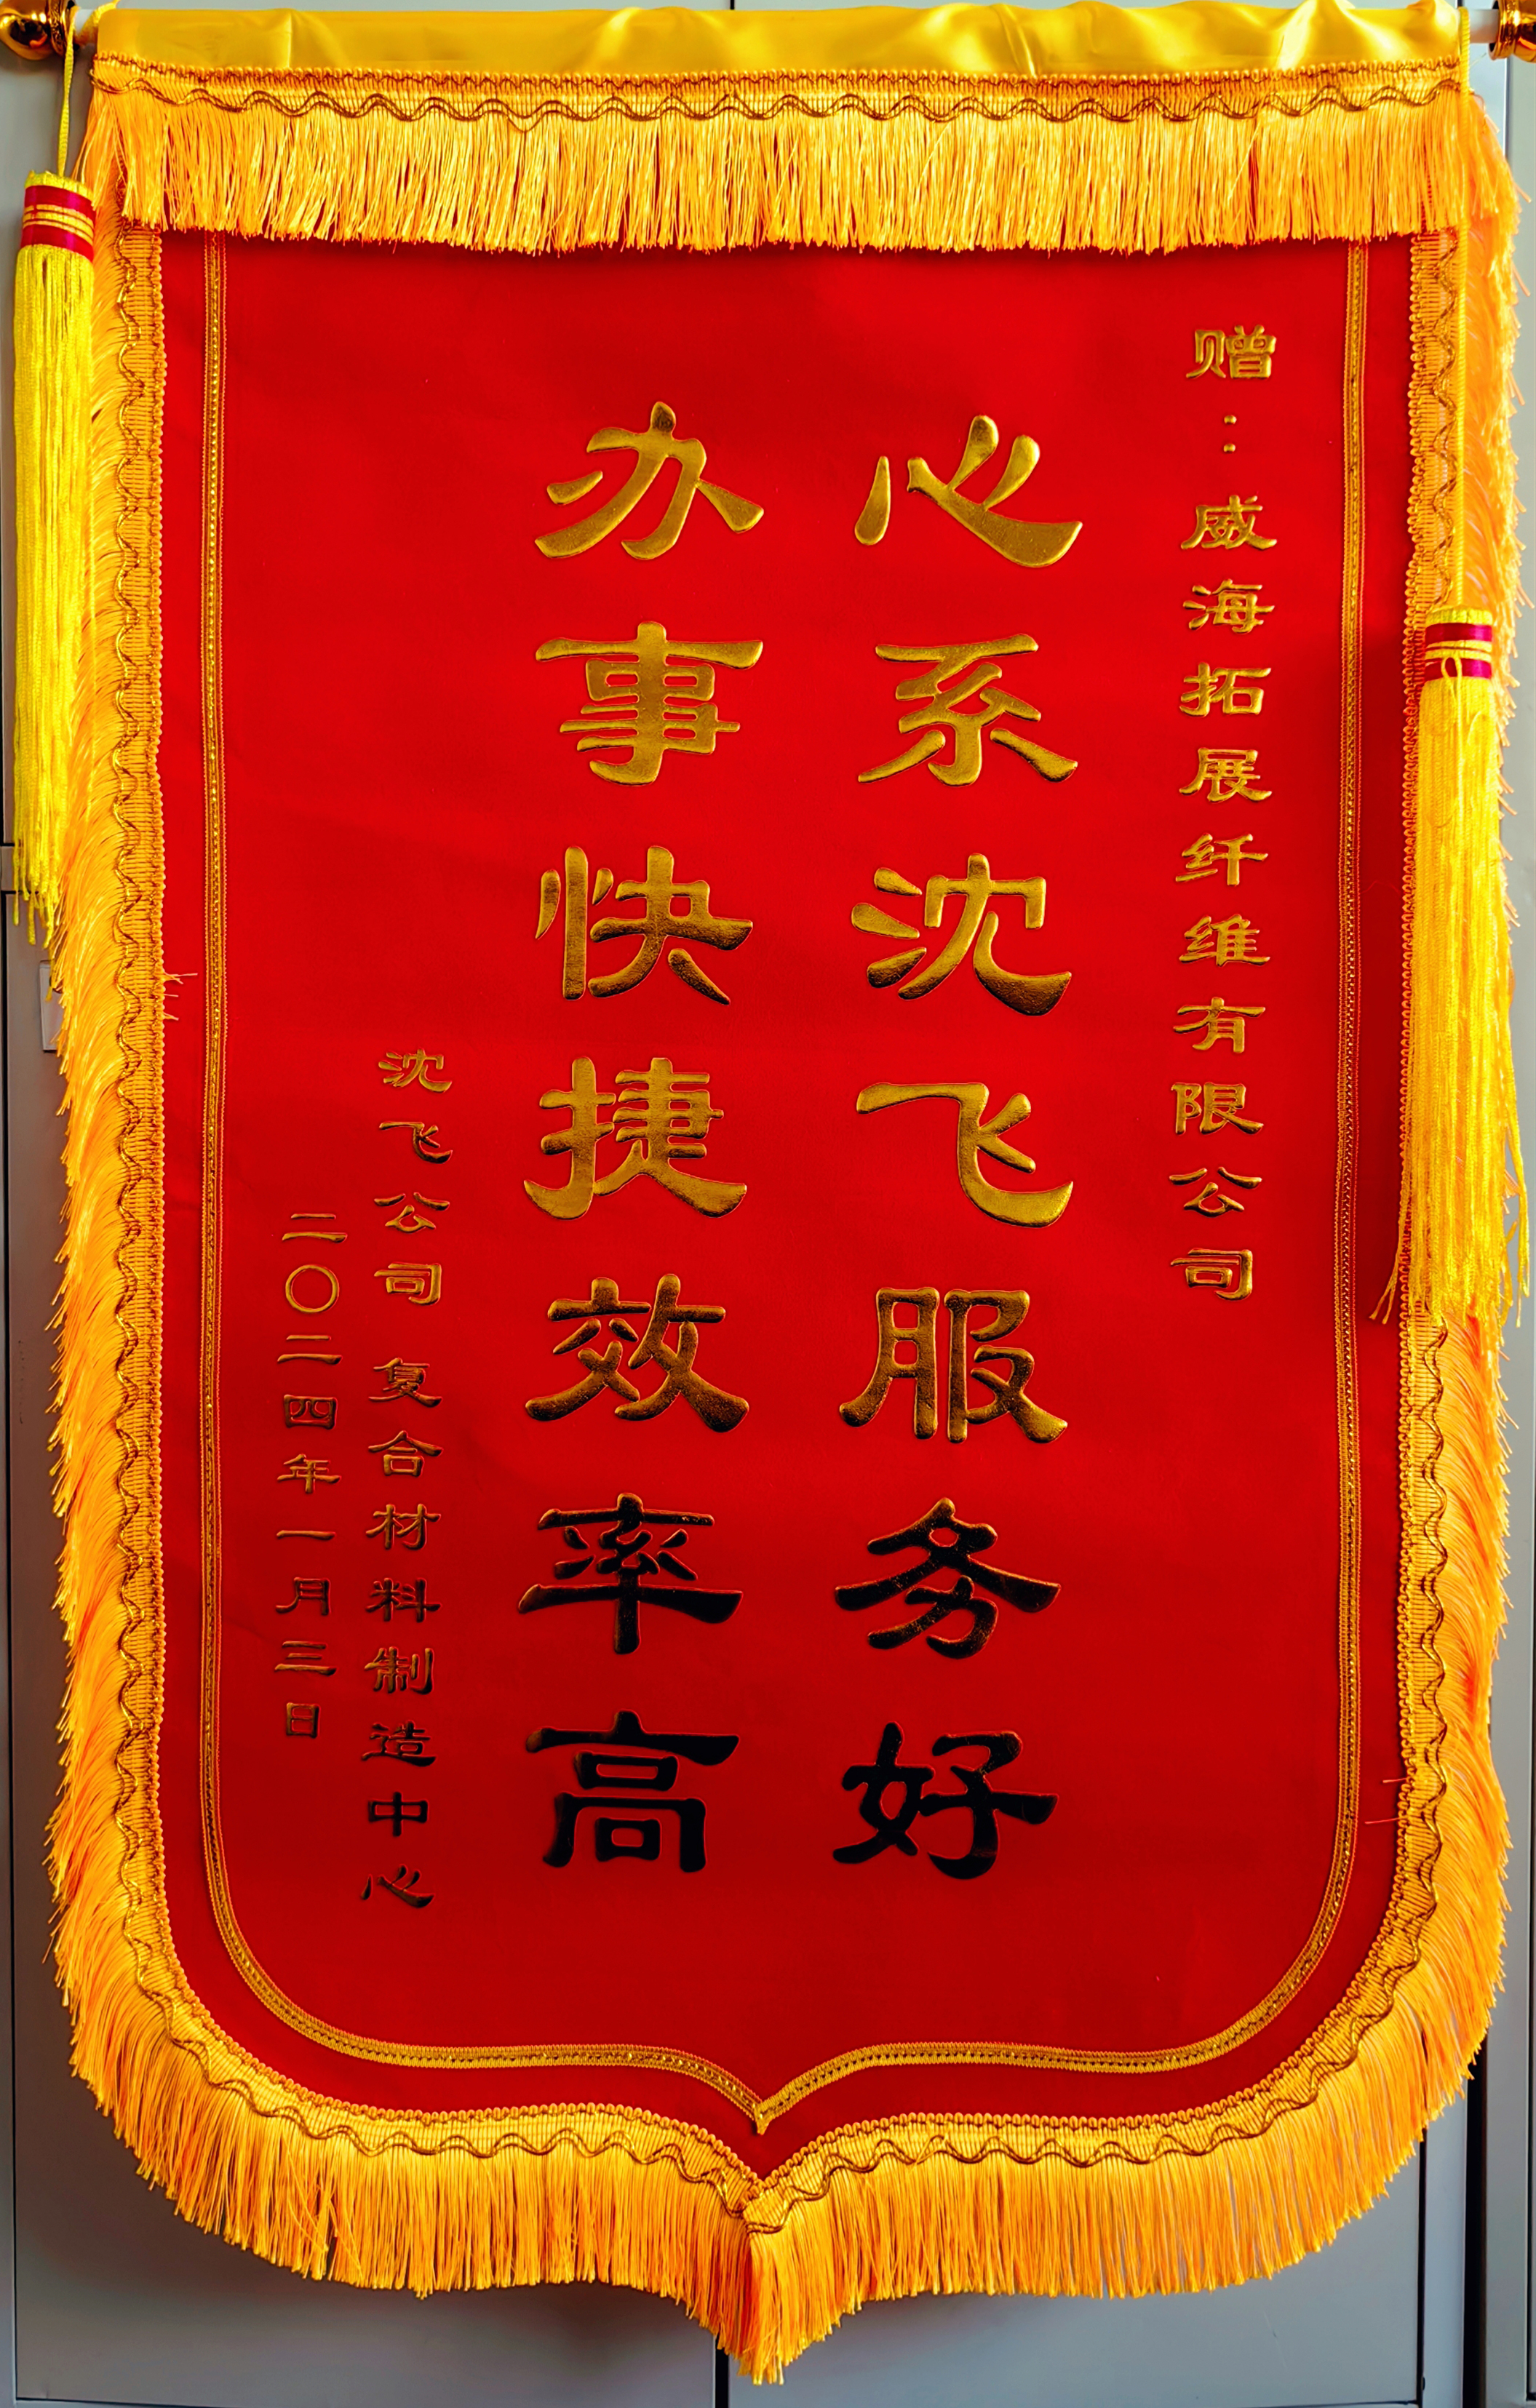 赠：威海拓展纤维有限公司
心系沈飞服务好
办事快捷效率高
沈飞公司 复合材料制造中心
二〇二四年一月三日